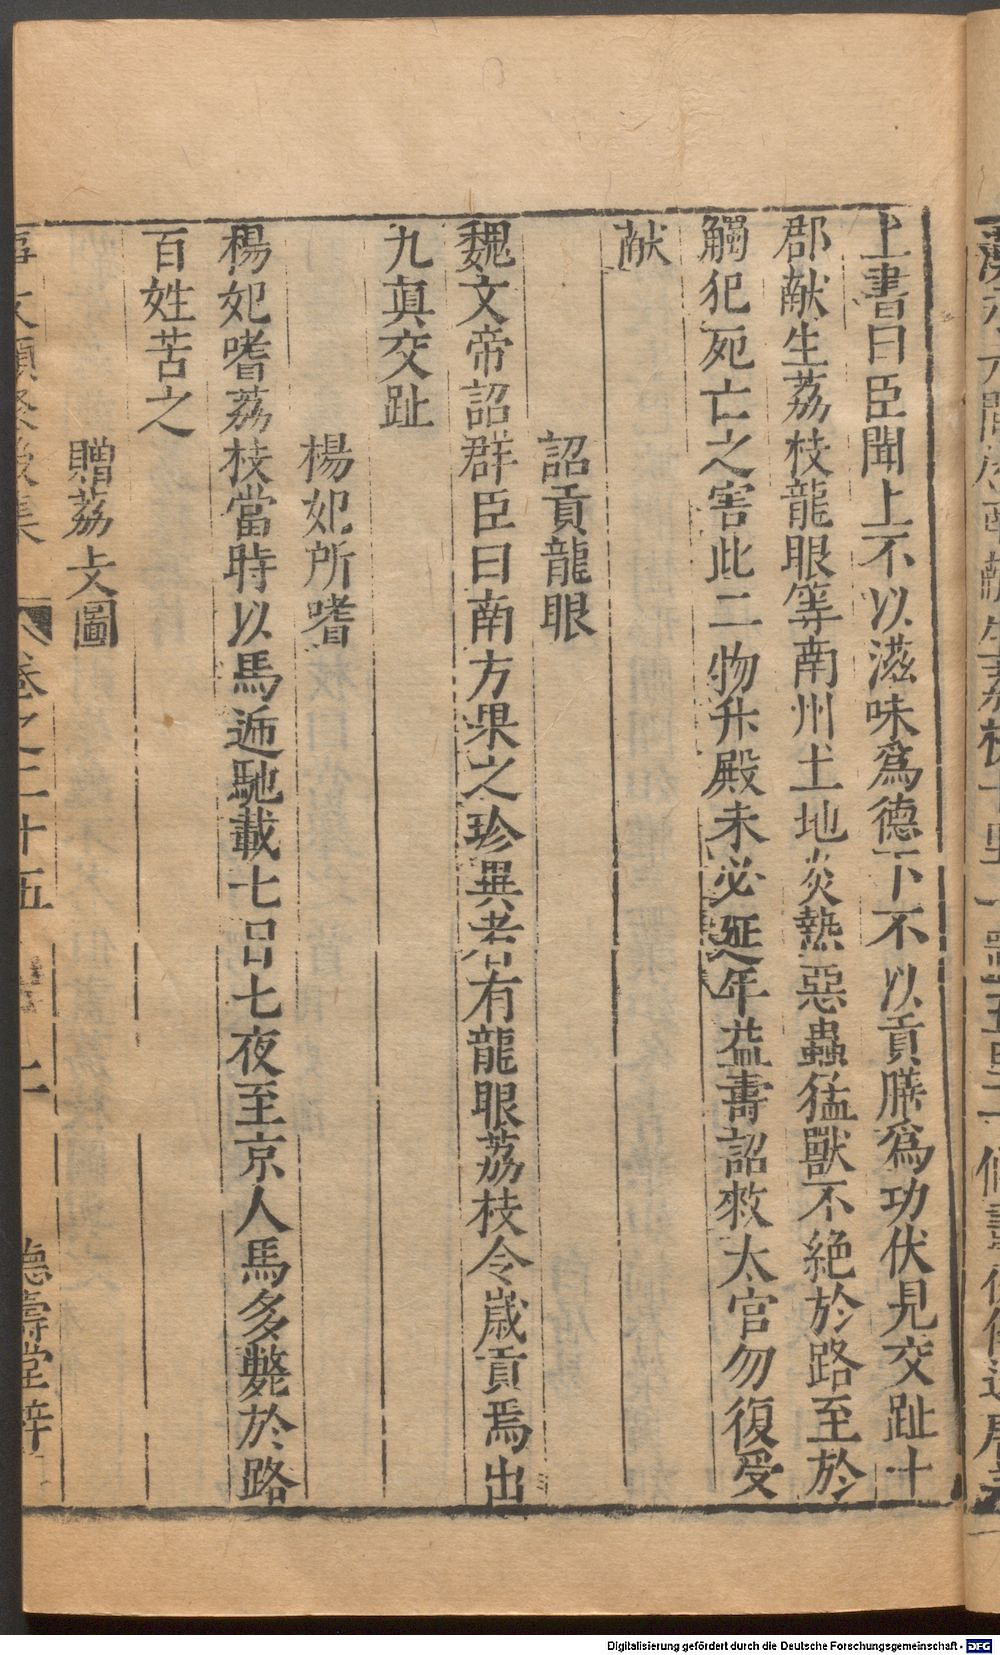 上書曰臣聞上不以滋味爲德下不以貢膳爲功伏見交趾十
郡献生荔枝龍眼等南州土地炎熱惡蟲猛獸不絶於路至於
觸犯死亡之害此二物升殿未必延年益壽詔敕太官勿復受
献
詔貢龍眼
魏文帝詔群臣曰南方果之珍異者有龍眼荔枝令歳貢焉出
九真交趾
楊妃所嗜
楊妃嗜荔枝當時以馬逓馳載七日七夜至京人馬多斃於路
百姓苦之
贈荔支圖
事文類聚後集
卷之二十五
二
德壽堂梓
Digitalisierung gefördert durch die Deutsche Forschungsgemeinschaft - DFG